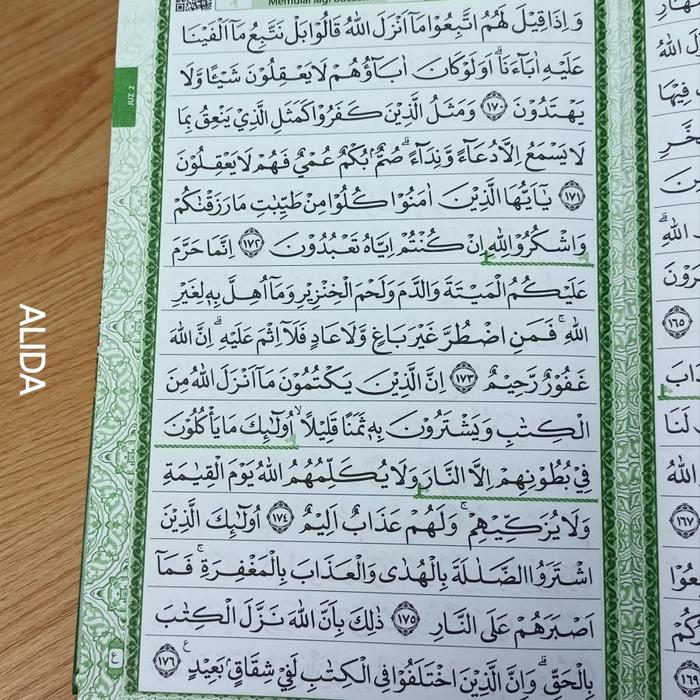 وَاِذَا قِيْلَ لَهُمُ اتَّبِعُوْا مَآ اَنْزَلَ اللّٰهُ قَالُوْا بَلْ نَتَّبِعُ مَآ اَلْفَيْنَا
عَلَيْهِ اٰبَاۤءَنَا ۗ اَوَلَوْ كَانَ اٰبَاۤؤُهُمْ لَا يَعْقِلُوْنَ شَيْـًٔا وَّلَا
يَهْتَدُوْنَ ١٧٠ وَمَثَلُ الَّذِيْنَ كَفَرُوْا كَمَثَلِ الَّذِيْ يَنْعِقُ بِمَا
لَا يَسْمَعُ اِلَّا دُعَاۤءً وَّنِدَاۤءً ۗ صُمٌّ ۢ بُكْمٌ عُمْيٌ فَهُمْ لَا يَعْقِلُوْنَ
١٧١ يٰٓاَيُّهَا الَّذِيْنَ اٰمَنُوْا كُلُوْا مِنْ طَيِّبٰتِ مَا رَزَقْنٰكُمْ
وَاشْكُرُوْا لِلّٰهِ اِنْ كُنْتُمْ اِيَّاهُ تَعْبُدُوْنَ ١٧٢ اِنَّمَا حَرَّمَ
عَلَيْكُمُ الْمَيْتَةَ وَالدَّمَ وَلَحْمَ الْخِنْزِيْرِ وَمَآ اُهِلَّ بِهٖ لِغَيْرِ
اللّٰهِ ۚ فَمَنِ اضْطُرَّ غَيْرَ بَاغٍ وَّلَا عَادٍ فَلَآ اِثْمَ عَلَيْهِ ۗ اِنَّ اللّٰهَ
غَفُوْرٌ رَّحِيْمٌ ١٧٣ اِنَّ الَّذِيْنَ يَكْتُمُوْنَ مَآ اَنْزَلَ اللّٰهُ مِنَ
الْكِتٰبِ وَيَشْتَرُوْنَ بِهٖ ثَمَنًا قَلِيْلًاۙ اُولٰۤىِٕكَ مَا يَأْكُلُوْنَ
فِيْ بُطُوْنِهِمْ اِلَّا النَّارَ وَلَا يُكَلِّمُهُمُ اللّٰهُ يَوْمَ الْقِيٰمَةِ
وَلَا يُزَكِّيْهِمْ ۚ وَلَهُمْ عَذَابٌ اَلِيْمٌ ١٧٤ اُولٰۤىِٕكَ الَّذِيْنَ
اشْتَرَوُا الضَّلٰلَةَ بِالْهُدٰى وَالْعَذَابَ بِالْمَغْفِرَةِ ۚ فَمَآ
اَصْبَرَهُمْ عَلَى النَّارِ ١٧٥ ذٰلِكَ بِاَنَّ اللّٰهَ نَزَّلَ الْكِتٰبَ
بِالْحَقِّ ۗ وَاِنَّ الَّذِيْنَ اخْتَلَفُوْا فِى الْكِتٰبِ لَفِيْ شِقَاقٍ ۢ بَعِيْدٍ ࣖ ١٧٦
JUZ 2
ع
ALIDA
اللّٰهُ
فِيْهَا
اللّٰهِ ۗ
١٦٥
لَنَا
اللّٰهُ
١٦٧